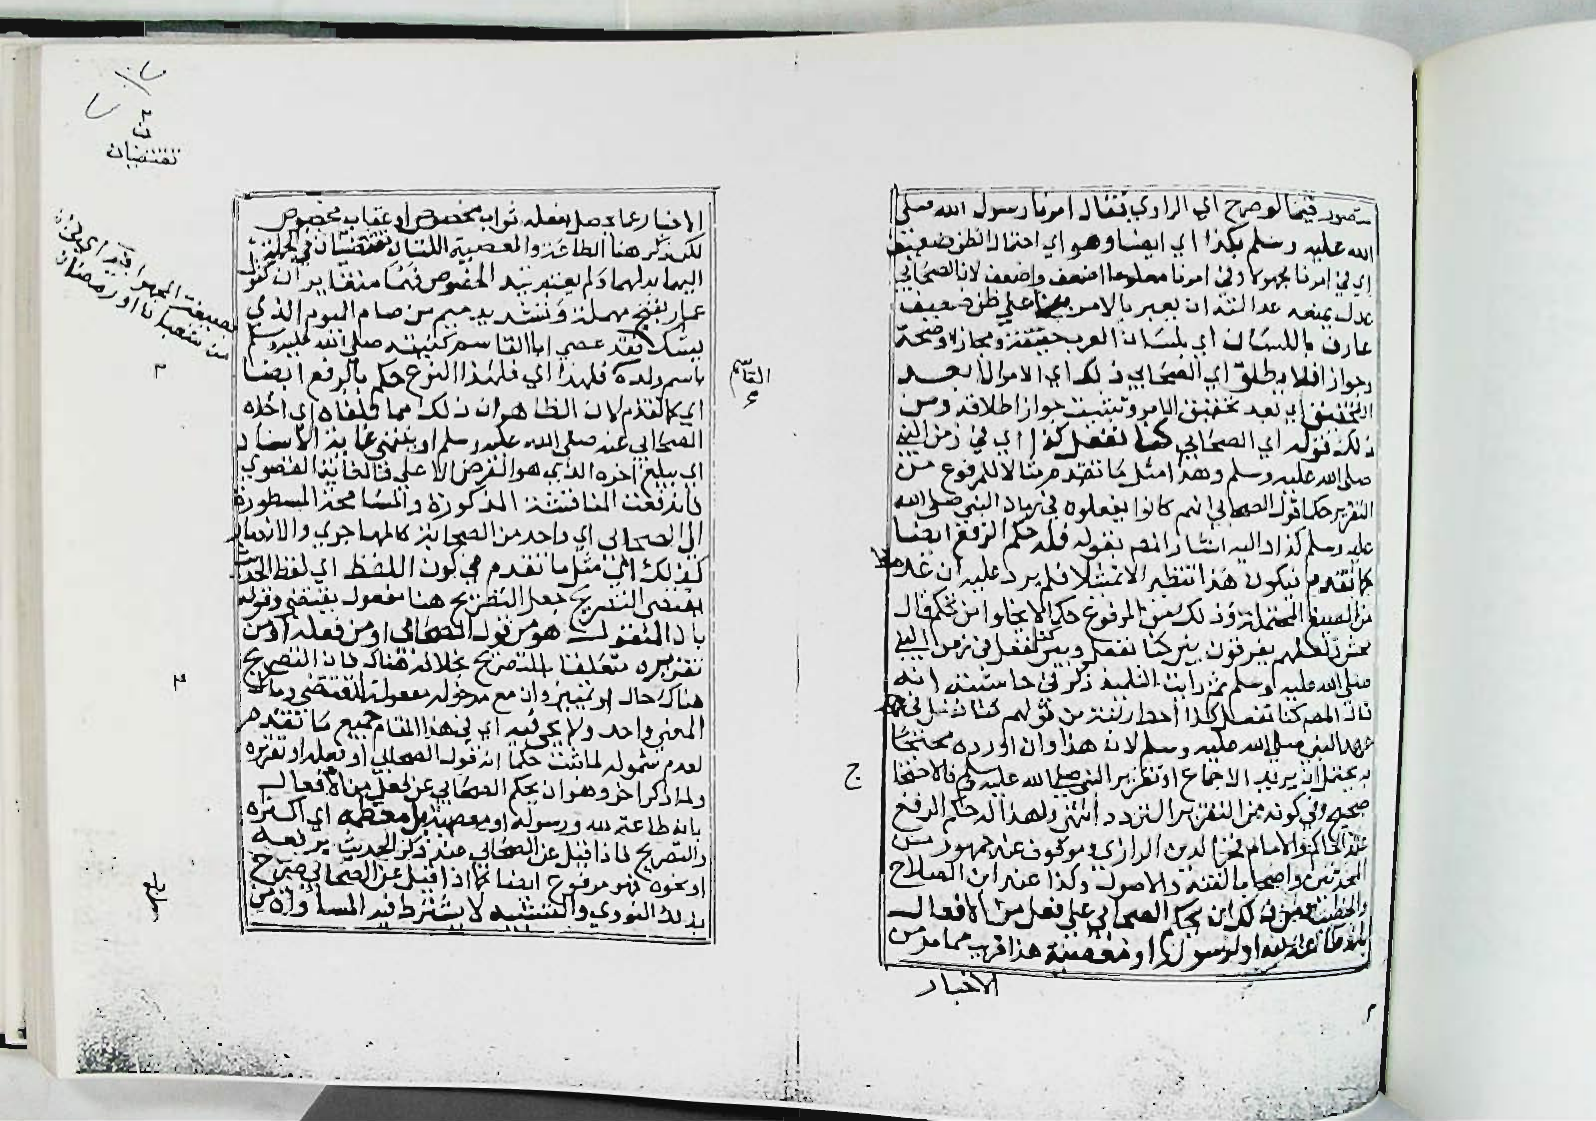 متصور فيما لو صرح أي الراوي فقال امرنا رسول الله صلى
الله عليه وسلم بكذا أي ايضا وهو أي احتمال الظن ضعيف
أي في امرنا مجهولا وفي امرنا معلوما اضعف واضعف لان الصحابي
عدل يمنعه عدالته ان يعبر بالامر بناء على ظن ضعيف
عارف باللسان أي بلسان العرب حقيقة ومجازا وصحة
وجوازا فلا يطلق أي الصحابي ذلك أي الامر الا بعد
التحقيق أي بعد تحقيق الامر وتثبت جواز اطلاقه ومن
ذلك قوله أي الصحابي كنا نفعل كذا أي في زمن النبي
صلى الله عليه وسلم وهذا مثل ما تقدم مثالا للمرفوع من
التقرير حكما قول الصحابي انهم كانوا يفعلون في زمان النبي صلى الله
عليه وسلم كذا واليه اشار المص بقوله فله حكم الرفع ايضا
كما تقدم فيكون هذا تنظيرا لا تمثيلا فلم يرد عليه ان عده
من الصيغ المحتملة وذلك من المرفوع حكما لا يخلوا من تحكم قال
محش لعلهم يفرقون بين كنا نفعل وبين كنا نفعل في زمن النبي
صلى الله عليه وسلم ثم رايت التلميذ ذكر في حاشيته انه
قال المص كنا نفعل كذا احط رتبة من قولهم كنا نفعل في
عهد النبي صلى الله عليه وسلم لان هذا وان اورده محتجا
به يحتمل ان يريد الاجماع او تقرير النبي صلى الله عليه وسلم فالاحتجاج
صحيح وفي كونه من التقرير التردد انتهى ولهذا له حكم الرفع
عند الحاكم والامام فخر الدين الرازي وموقوف عند جمهور من
المحدثين واصحاب الفقه والاصول وكذا عند ابن الصلاح
والخطيب ومن ذلك ان يحكم الصحابي على فعل من الافعال
بانه طاعة لله او لرسوله او معصية هذا قريب مما مر من
الاخبار
الاخبار عما يحصل بفعله ثواب مخصوص او عقاب مخصوص
لكن ذكر هنا الطاعة والمعصية اللتان تقتضيان في الجملة
اليهما بدلهما ولم يعتبر قيد الخصوص فهما متغايران كقول
عمار بفتح مهملة وتشديد ميم من صام اليوم الذي
يشك فيه فقد عصى ابا القاسم كنيته صلى الله عليه وسلم
باسم ولده فلهذا أي فلهذا النوع حكم بالرفع ايضا
أي كما تقدم لان الظاهر ان ذلك مما تلقاه أي اخذه
الصحابي عنه صلى الله عليه وسلم او ينتهي غاية الاسناد
أي يبلغ اخره الذي هو الغرض الاعلى والغاية القصوى
فاندفعت المناقشة المذكورة والمسامحة المسطورة
الى الصحابي أي واحد من الصحابة كالمهاجري والانصاري
كذلك أي مثل ما تقدم في كون اللفظ أي لفظ الحديث
يقتضي التصريح جعل التصريح هنا مفعول يقتضي وقوله
بان المنقول هو من قول الصحابي او من فعله او من
تقريره متعلقا بالتصريح بخلافه هناك فان التصريح
هناك حال او تمييز وان مع مدخوله مفعول ليقتضي ومآل
المعنى واحد ولا يجيء فيه أي في هذا المقام جميع ما تقدم
لعدم شموله لما ثبت حكما انه قول الصحابي او فعله او تقريره
ولما ذكر اخر وهو ان يحكم الصحابي عن فعل من الافعال
بانه طاعة لله ورسوله او معصية بل معظمه أي اكثره
والتصريح فاذا قيل عن الصحابي عند ذكر الحديث يرفعه
او نحوه فهو مرفوع ايضا كما اذا قيل عن الصحابي صرح
بذلك النووي والتشبيه لا يشترط فيه المساواة من
القاسم
تقتضيان
بصيغة المجهول
من شعبان او رمضان